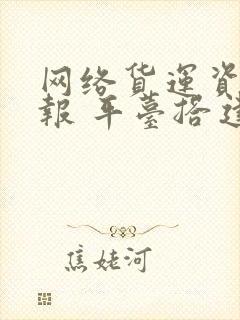 网络货運資
報 平臺搭
焦姥河